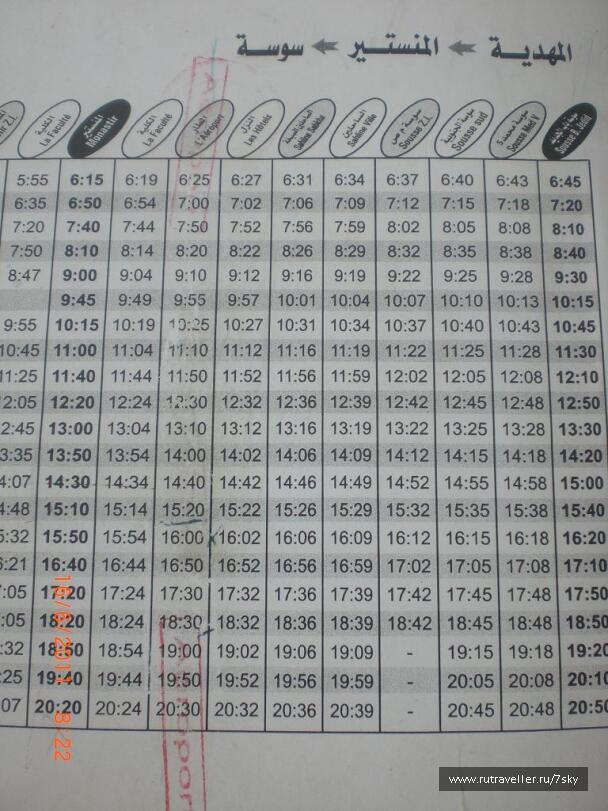 المهدية ← المنستير ← سوسة
الكلية La Faculté | المنستير Monastir | الكلية La Faculté | المطار L'Aéroport | النزل Les Hôtels | Sahline Sebkha | الساحلين Sahline Ville | Sousse Z.I. | سوسة الجنوبية Sousse sud | سوسة محمد 5 Sousse Med V | Sousse B. Jedid
5:55 6:15 6:19 6:25 6:27 6:31 6:34 6:37 6:40 6:43 6:45
6:35 6:50 6:54 7:00 7:02 7:06 7:09 7:12 7:15 7:18 7:20
7:20 7:40 7:44 7:50 7:52 7:56 7:59 8:02 8:05 8:08 8:10
7:50 8:10 8:14 8:20 8:22 8:26 8:29 8:32 8:35 8:38 8:40
8:47 9:00 9:04 9:10 9:12 9:16 9:19 9:22 9:25 9:28 9:30
9:45 9:49 9:55 9:57 10:01 10:04 10:07 10:10 10:13 10:15
9:55 10:15 10:19 10:25 10:27 10:31 10:34 10:37 10:40 10:43 10:45
10:45 11:00 11:04 11:10 11:12 11:16 11:19 11:22 11:25 11:28 11:30
11:25 11:40 11:44 11:50 11:52 11:56 11:59 12:02 12:05 12:08 12:10
12:05 12:20 12:24 12:30 12:32 12:36 12:39 12:42 12:45 12:48 12:50
2:45 13:00 13:04 13:10 13:12 13:16 13:19 13:22 13:25 13:28 13:30
3:35 13:50 13:54 14:00 14:02 14:06 14:09 14:12 14:15 14:18 14:20
4:07 14:30 14:34 14:40 14:42 14:46 14:49 14:52 14:55 14:58 15:00
4:48 15:10 15:14 15:20 15:22 15:26 15:29 15:32 15:35 15:38 15:40
5:32 15:50 15:54 16:00 16:02 16:06 16:09 16:12 16:15 16:18 16:20
6:21 16:40 16:44 16:50 16:52 16:56 16:59 17:02 17:05 17:08 17:10
:05 17:20 17:24 17:30 17:32 17:36 17:39 17:42 17:45 17:48 17:50
:05 18:20 18:24 18:30 18:32 18:36 18:39 18:42 18:45 18:48 18:50
:32 18:50 18:54 19:00 19:02 19:06 19:09 - 19:15 19:18 19:20
:25 19:40 19:44 19:50 19:52 19:56 19:59 - 20:05 20:08 20:10
:07 20:20 20:24 20:30 20:32 20:36 20:39 - 20:45 20:48 20:50
www.rutraveller.ru/7sky